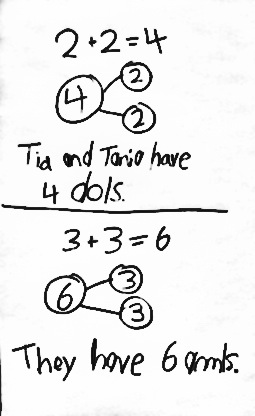 2+2=4
4
2
2
Tia and Tania have
4 dols.
3+3=6
6
3
3
They have 6 armts.